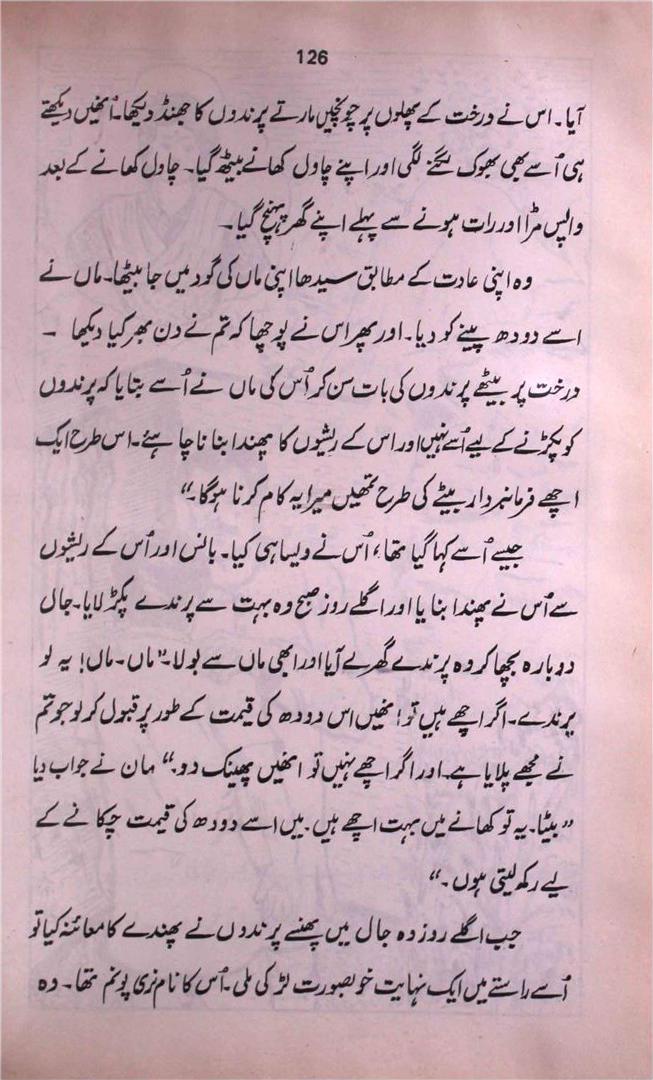 126
آیا۔ اس نے درخت کے پھلوں پر چونچیں مارتے پرندوں کا جھنڈ دیکھا۔ اُنھیں دیکھتے
ہی اُسے بھی بھوک لگنے لگی اور اپنے چاول کھانے بیٹھ گیا۔ چاول کھانے کے بعد
واپس مڑا اور رات ہونے سے پہلے اپنے گھر پہنچ گیا۔
وہ اپنی عادت کے مطابق سیدھا اپنی ماں کی گود میں جا بیٹھا۔ ماں نے
اسے دودھ پینے کو دیا۔ اور پھر اس نے پوچھا کہ تم نے دن بھر کیا دیکھا ۔
درخت پر بیٹھے پرندوں کی بات سن کر اُس کی ماں نے اُسے بتایا کہ پرندوں
کو پکڑنے کے لیے اُسے نہیں اور اس کے ریشوں کا پھندا بنانا چاہئے۔ اس طرح ایک
اچھے فرمانبردار بیٹے کی طرح تمھیں میرا یہ کام کرنا ہوگا۔“
جیسے اُسے کہا گیا تھا، اُس نے ویسا ہی کیا۔ بانس اور اُس کے ریشوں
سے اُس نے پھندا بنایا اور اگلے روز صبح وہ بہت سے پرندے پکڑ لایا۔ جال
دوبارہ بچھا کر وہ پرندے گھر لے آیا اور ابھی ماں سے بولا۔ ”ماں۔ ماں! یہ لو
پرندے۔ اگر اچھے ہیں تو انھیں اس دودھ کی قیمت کے طور پر قبول کر لو جو تم
نے مجھے پلایا ہے۔ اور اگر اچھے نہیں تو انھیں پھینک دو۔“ مان نے جواب دیا
”بیٹا۔ یہ تو کھانے میں بہت اچھے ہیں۔ میں اسے دودھ کی قیمت چکانے کے
لیے رکھ لیتی ہوں۔“
جب اگلے روز وہ جال میں پھنسے پرندوں نے پھندے کا معائنہ کیا تو
اُسے راستے میں ایک نہایت خوبصورت لڑکی ملی۔ اُس کا نام نری پونم تھا۔ وہ